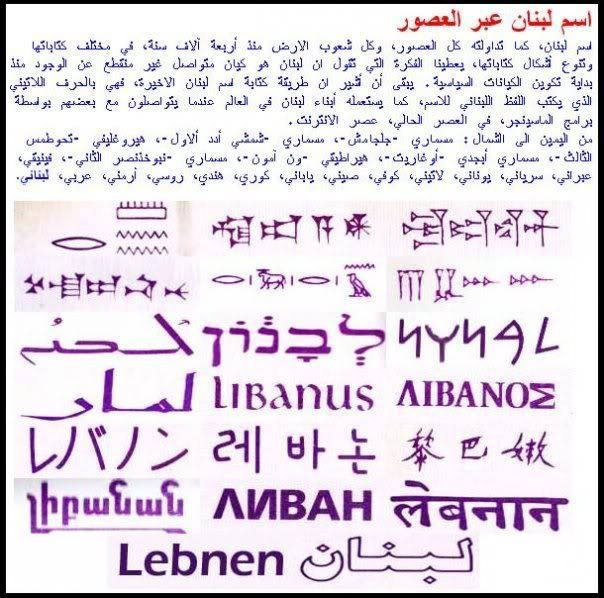 اسم لبنان عبر العصور
اسم لبنان، كما تداولته كل العصور، وكل شعوب الارض منذ أربعة آلاف سنة، في مختلف كتاباتها
وتنوع أشكال كتاباتها، يعطينا الفكرة التي تقول ان لبنان هو كيان متواصل غير منقطع عن الوجود منذ
بداية تكوين الكيانات السياسية. يبقى أن أشير ان طريقة كتابة اسم لبنان الاخيرة، فهي بالحرف اللاتيني
الذي يكتب اللفظ اللبناني للاسم، كما يستعمله أبناء لبنان في العالم عندما يتواصلون مع بعضهم بواسطة
برامج الماسينجر، في العصر الحالي، عصر الانترنت.
من اليمين الى الشمال: مسماري -جلجامش-، مسماري -شمشي أدد ألاول-، هيروغليفي -تحوطمس
الثالث-، مسماري أبجدي -أوغاريت-، هيراطيقي -ون آمون-، مسماري -نبوخذنصر الثاني-، فينيقي،
عبراني، سرياني، يوناني، لاتيني، كوفي، صيني، ياباني، كوري، هندي، روسي، أرمني، عربي، لبناني.
לְבָנוֹן 𐤋𐤁𐤍𐤍
LIBANUS ΛΙΒΑΝΟΣ
レバノン 레바논 黎巴嫩
Լիբանան ЛИВАН लेबनान
Lebnen لبنان